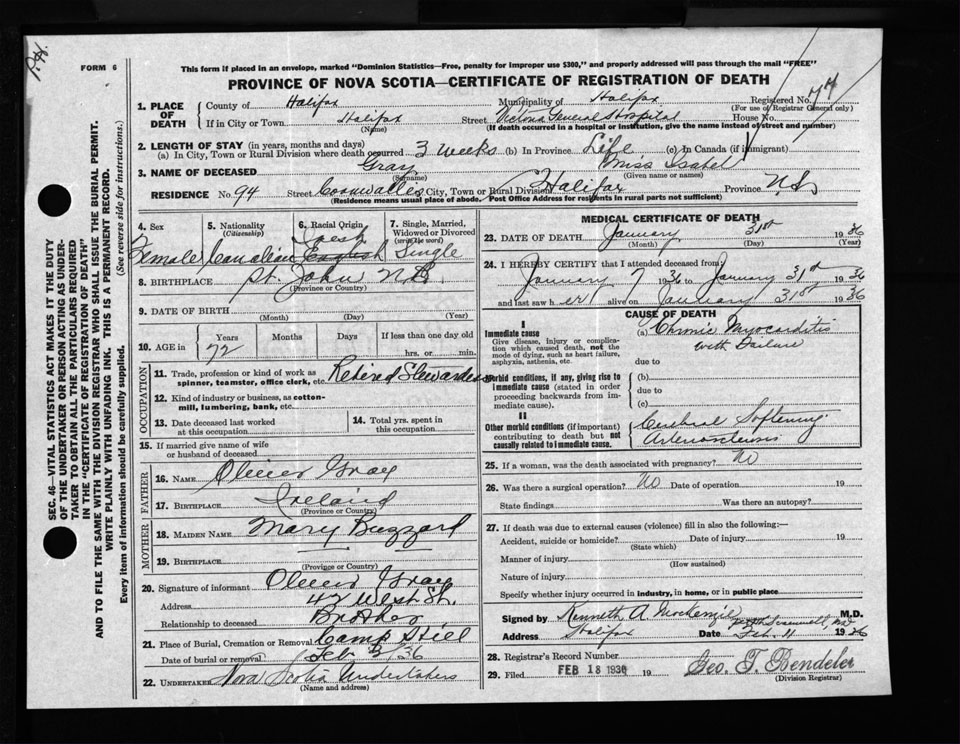 P.H.
FORM 6
This form if placed in an envelope, marked "Dominion Statistics—Free, penalty for improper use $300," and properly addressed will pass through the mail "FREE"
PROVINCE OF NOVA SCOTIA—CERTIFICATE OF REGISTRATION OF DEATH
SEC. 46—VITAL STATISTICS ACT MAKES IT THE DUTY
OF THE UNDERTAKER OR PERSON ACTING AS UNDER-
TAKER TO OBTAIN ALL THE PARTICULARS REQUIRED
IN THE "CERTIFICATE OF REGISTRATION OF DEATH"
AND TO FILE THE SAME WITH THE DIVISION REGISTRAR WHO SHALL ISSUE THE BURIAL PERMIT.
WRITE PLAINLY WITH UNFADING INK. THIS IS A PERMANENT RECORD.
Every item of information should be carefully supplied. (See reverse side for instructions.)
1. PLACE OF DEATH
County of Halifax Municipality of Halifax Registered No. 74
(For use of Registrar General only)
If in City or Town Halifax Street Victoria General Hospital House No.
(Name) (If death occurred in a hospital or institution, give the name instead of street and number)
2. LENGTH OF STAY (in years, months and days)
(a) In City, Town or Rural Division where death occurred 3 weeks (b) In Province Life (c) In Canada (if immigrant)
3. NAME OF DECEASED Gray Miss Isabel
(Surname) (Given name or names)
RESIDENCE No. 94 Street Cornwallis City, Town or Rural Division Halifax Province N.S.
(Residence means usual place of abode. Post Office Address for residents in rural parts not sufficient)
4. Sex 5. Nationality (Citizenship) 6. Racial Origin 7. Single, Married, Widowed or Divorced (write the word)
Female Canadian English Single
8. BIRTHPLACE St. John N.B.
(Province or Country)
9. DATE OF BIRTH
(Month) (Day) (Year)
10. AGE in Years Months Days If less than one day old
72 hrs. or min.
OCCUPATION
11. Trade, profession or kind of work as spinner, teamster, office clerk, etc. Retired Stewardess
12. Kind of industry or business, as cotton-mill, lumbering, bank, etc.
13. Date deceased last worked at this occupation
14. Total yrs. spent in this occupation
15. If married give name of wife or husband of deceased
FATHER
16. NAME Oliver Gray
17. BIRTHPLACE Ireland
(Province or Country)
MOTHER
18. MAIDEN NAME Mary Buzzard
19. BIRTHPLACE
(Province or Country)
20. Signature of informant Oliver Gray
Address 42 West St.
Relationship to deceased Brother
21. Place of Burial, Cremation or Removal Camp Hill
Date of burial or removal Feb 3/36
22. UNDERTAKER Nova Scotia Undertakers
(Name and address)
MEDICAL CERTIFICATE OF DEATH
23. DATE OF DEATH January 31st 1936
(Month) (Day) (Year)
24. I HEREBY CERTIFY that I attended deceased from
January 7 1936 to January 31st 1936
and last saw her alive on January 31st 1936
CAUSE OF DEATH
I
Immediate cause
Give disease, injury or complication which caused death, not the mode of dying, such as heart failure, asphyxia, asthenia, etc.
(a) Chronic Myocarditis
with Failure
due to
Morbid conditions, if any, giving rise to immediate cause (stated in order proceeding backwards from immediate cause).
(b)
due to
(c)
II
Other morbid conditions (if important) contributing to death but not causally related to immediate cause.
Cerebral Softening
Arteriosclerosis
25. If a woman, was the death associated with pregnancy? No
26. Was there a surgical operation? No Date of operation 19
State findings Was there an autopsy?
27. If death was due to external causes (violence) fill in also the following:—
Accident, suicide or homicide? Date of injury 19
(State which)
Manner of injury
(How sustained)
Nature of injury
Specify whether injury occurred in industry, in home, or in public place
Signed by Kenneth A. MacKenzie M.D.
Address Halifax Date Feb. 11 1936
28. Registrar's Record Number
29. Filed FEB 18 1936 19 Geo. T. Bendeler
(Division Registrar)